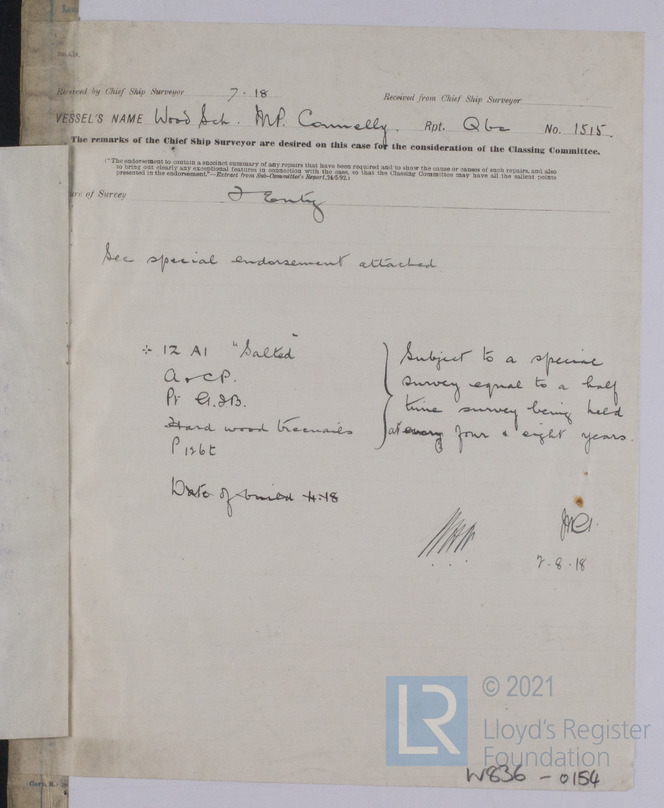 Received by Chief Ship Surveyor 7-18 Received from Chief Ship Surveyor
VESSEL'S NAME Wood Sch. M.P. Connolly. Rpt. Qbc No. 1515.
The remarks of the Chief Ship Surveyor are desired on this case for the consideration of the Classing Committee.
("The endorsement to contain a succinct summary of any repairs that have been required and to show the cause or causes of such repairs, and also
to bring out clearly any exceptional features in connection with the case, so that the Classing Committee may have all the salient points
presented in the endorsement."—Extract from Sub-Committee's Report, 24/5/92.)
ure of Survey F Entry
See special endorsement attached
12 A1 "Salted"
A & CP.
Pt G.I.B.
Hard wood treenails
P 126t
Date of build 4-18
Subject to a special
survey equal to a half
time survey being held
at every four & eight years.
7-8-18
LR © 2021
Lloyd's Register
Foundation
W836 - 0154